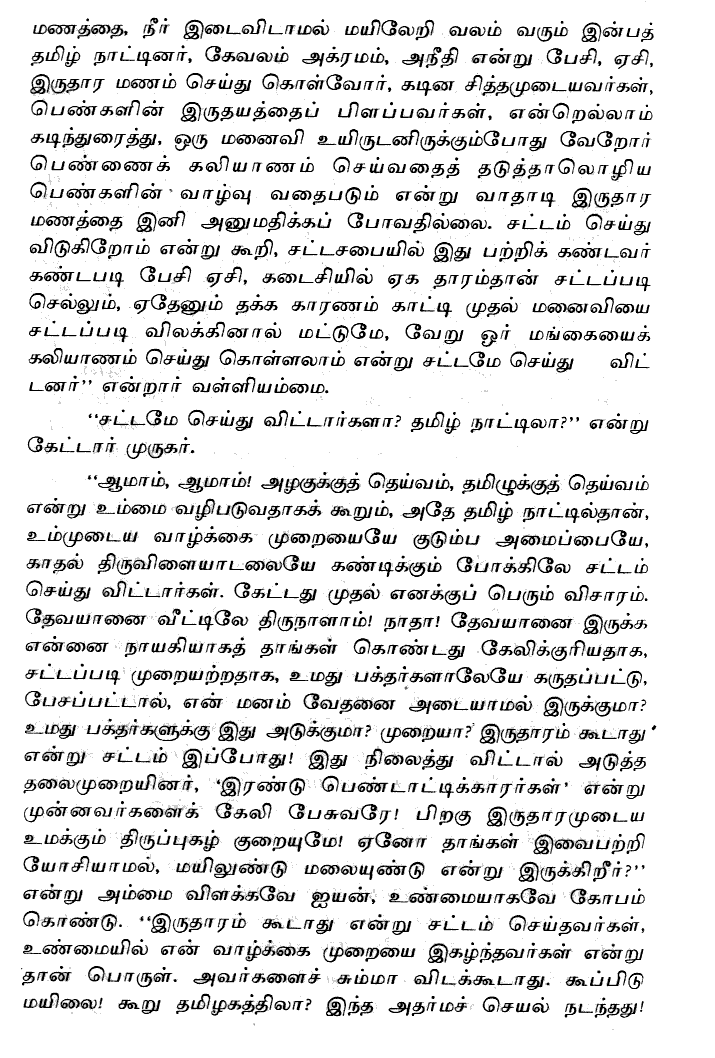 மணத்தை, நீர் இடைவிடாமல் மயிலேறி வலம் வரும் இன்பத்
தமிழ் நாட்டினர், கேவலம் அக்ரமம், அநீதி என்று பேசி, ஏசி,
இருதார மணம் செய்து கொள்வோர், கடின சித்தமுடையவர்கள்,
பெண்களின் இருதயத்தைப் பிளப்பவர்கள், என்றெல்லாம்
கடிந்துரைத்து, ஒரு மனைவி உயிருடனிருக்கும்போது வேறோர்
பெண்ணைக் கலியாணம் செய்வதைத் தடுத்தாலொழிய
பெண்களின் வாழ்வு வதைபடும் என்று வாதாடி இருதார
மணத்தை இனி அனுமதிக்கப் போவதில்லை. சட்டம் செய்து
விடுகிறோம் என்று கூறி, சட்டசபையில் இது பற்றிக் கண்டவர்
கண்டபடி பேசி ஏசி, கடைசியில் ஏக தாரம்தான் சட்டப்படி
செல்லும், ஏதேனும் தக்க காரணம் காட்டி முதல் மனைவியை
சட்டப்படி விலக்கினால் மட்டுமே, வேறு ஓர் மங்கையைக்
கலியாணம் செய்து கொள்ளலாம் என்று சட்டமே செய்து விட்
டனர்'' என்றார் வள்ளியம்மை.
''சட்டமே செய்து விட்டார்களா? தமிழ் நாட்டிலா?'' என்று
கேட்டார் முருகர்.
''ஆமாம், ஆமாம்! அழகுக்குத் தெய்வம், தமிழுக்குத் தெய்வம்
என்று உம்மை வழிபடுவதாகக் கூறும், அதே தமிழ் நாட்டில்தான்,
உம்முடைய வாழ்க்கை முறையையே குடும்ப அமைப்பையே,
காதல் திருவிளையாடலையே கண்டிக்கும் போக்கிலே சட்டம்
செய்து விட்டார்கள். கேட்டது முதல் எனக்குப் பெரும் விசாரம்.
தேவயானை வீட்டிலே திருநாளாம்! நாதா! தேவயானை இருக்க
என்னை நாயகியாகத் தாங்கள் கொண்டது கேலிக்குரியதாக,
சட்டப்படி முறையற்றதாக, உமது பக்தர்களாலேயே கருதப்பட்டு,
பேசப்பட்டால், என் மனம் வேதனை அடையாமல் இருக்குமா?
உமது பக்தர்களுக்கு இது அடுக்குமா? முறையா? இருதாரம் கூடாது
என்று சட்டம் இப்போது! இது நிலைத்து விட்டால் அடுத்த
தலைமுறையினர், 'இரண்டு பெண்டாட்டிக்காரர்கள்' என்று
முன்னவர்களைக் கேலி பேசுவரே! பிறகு இருதாரமுடைய
உமக்கும் திருப்புகழ் குறையுமே! ஏனோ தாங்கள் இவைபற்றி
யோசியாமல், மயிலுண்டு மலையுண்டு என்று இருக்கிறீர்?''
என்று அம்மை விளக்கவே ஐயன், உண்மையாகவே கோபம்
கொண்டு. ''இருதாரம் கூடாது என்று சட்டம் செய்தவர்கள்,
உண்மையில் என் வாழ்க்கை முறையை இகழ்ந்தவர்கள் என்று
தான் பொருள். அவர்களைச் சும்மா விடக்கூடாது. கூப்பிடு
மயிலை! கூறு தமிழகத்திலா? இந்த அதர்மச் செயல் நடந்தது!